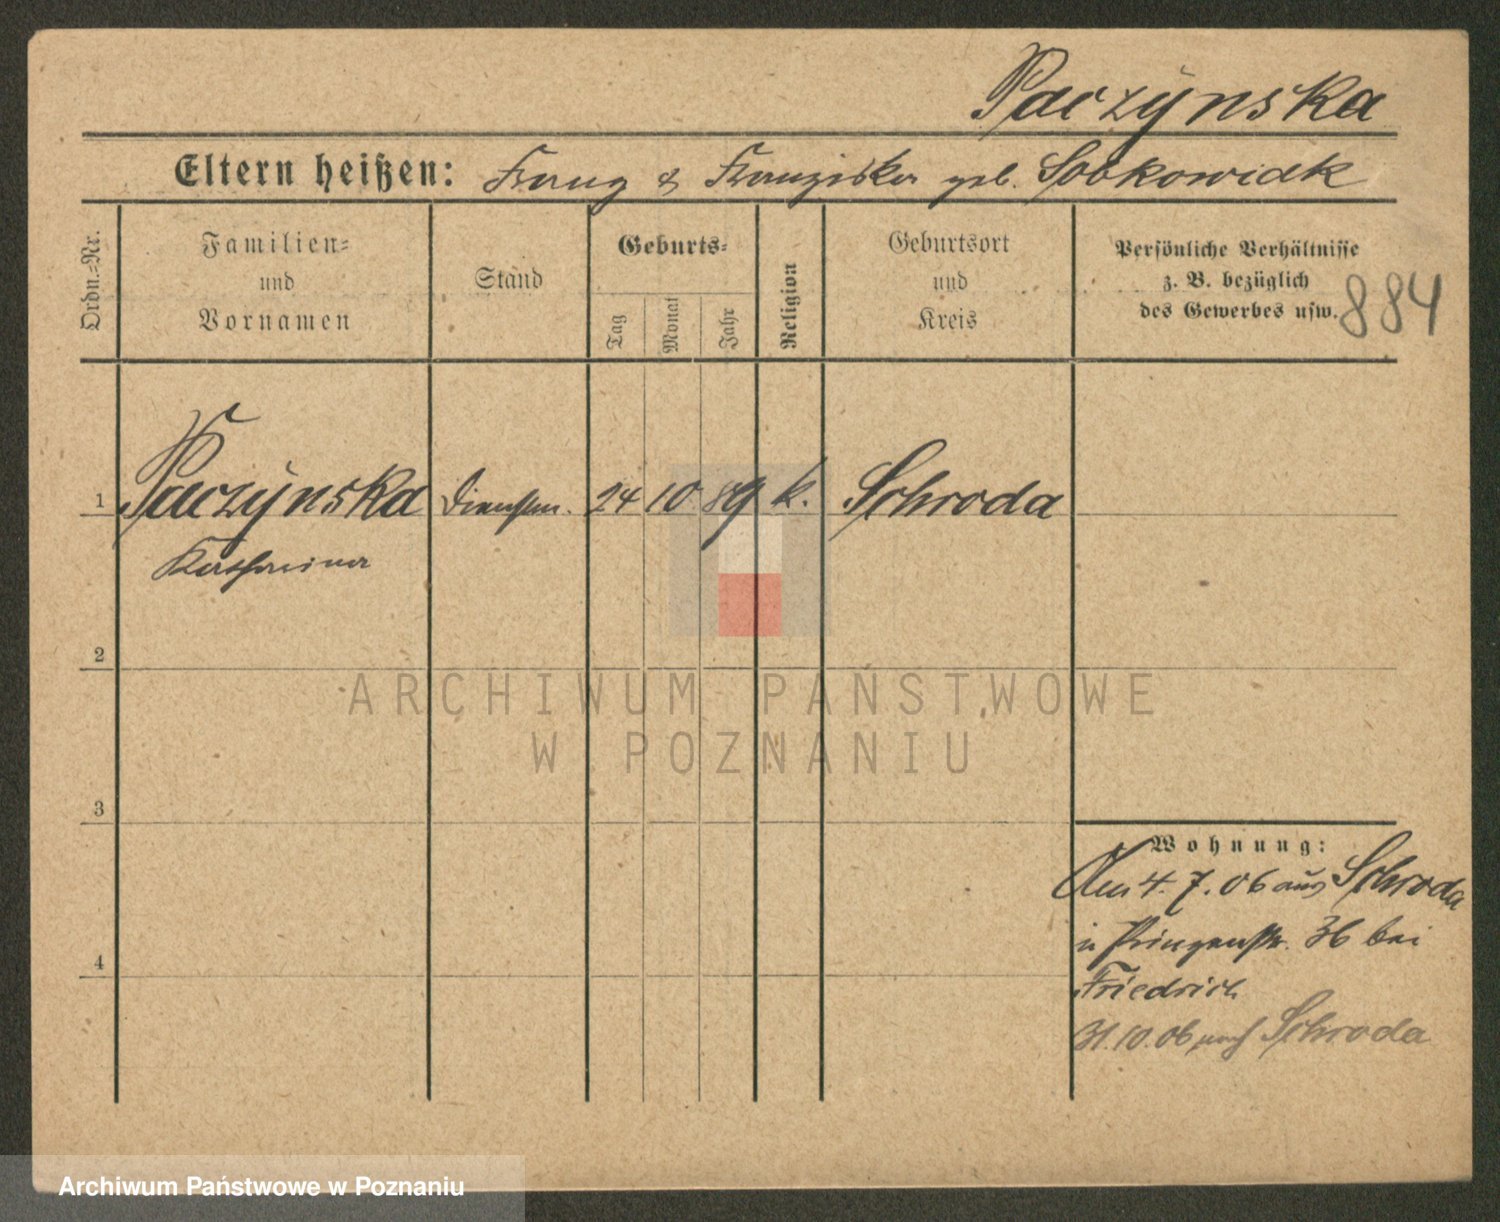 Paczynska
Eltern heißen: Franz & Franziska geb. Sobkowiak
Ordn.=Nr.
Familien=
und
Vornamen
Stand
Geburts=
Tag
Monat
Jahr
Religion
Geburtsort
und
Kreis
Persönliche Verhältnisse
z. B. bezüglich
des Gewerbes usw.
884
1 Paczynska Dienstm. 24 10 89 k. Schroda
Katharina
2
3
4
Wohnung:
Am 4. 7. 06 aus Schroda
in Prinzenstr. 36 bei
Friedrich
31.10.06 nach Schroda
ARCHIWUM PAŃSTWOWE
W POZNANIU
Archiwum Państwowe w Poznaniu